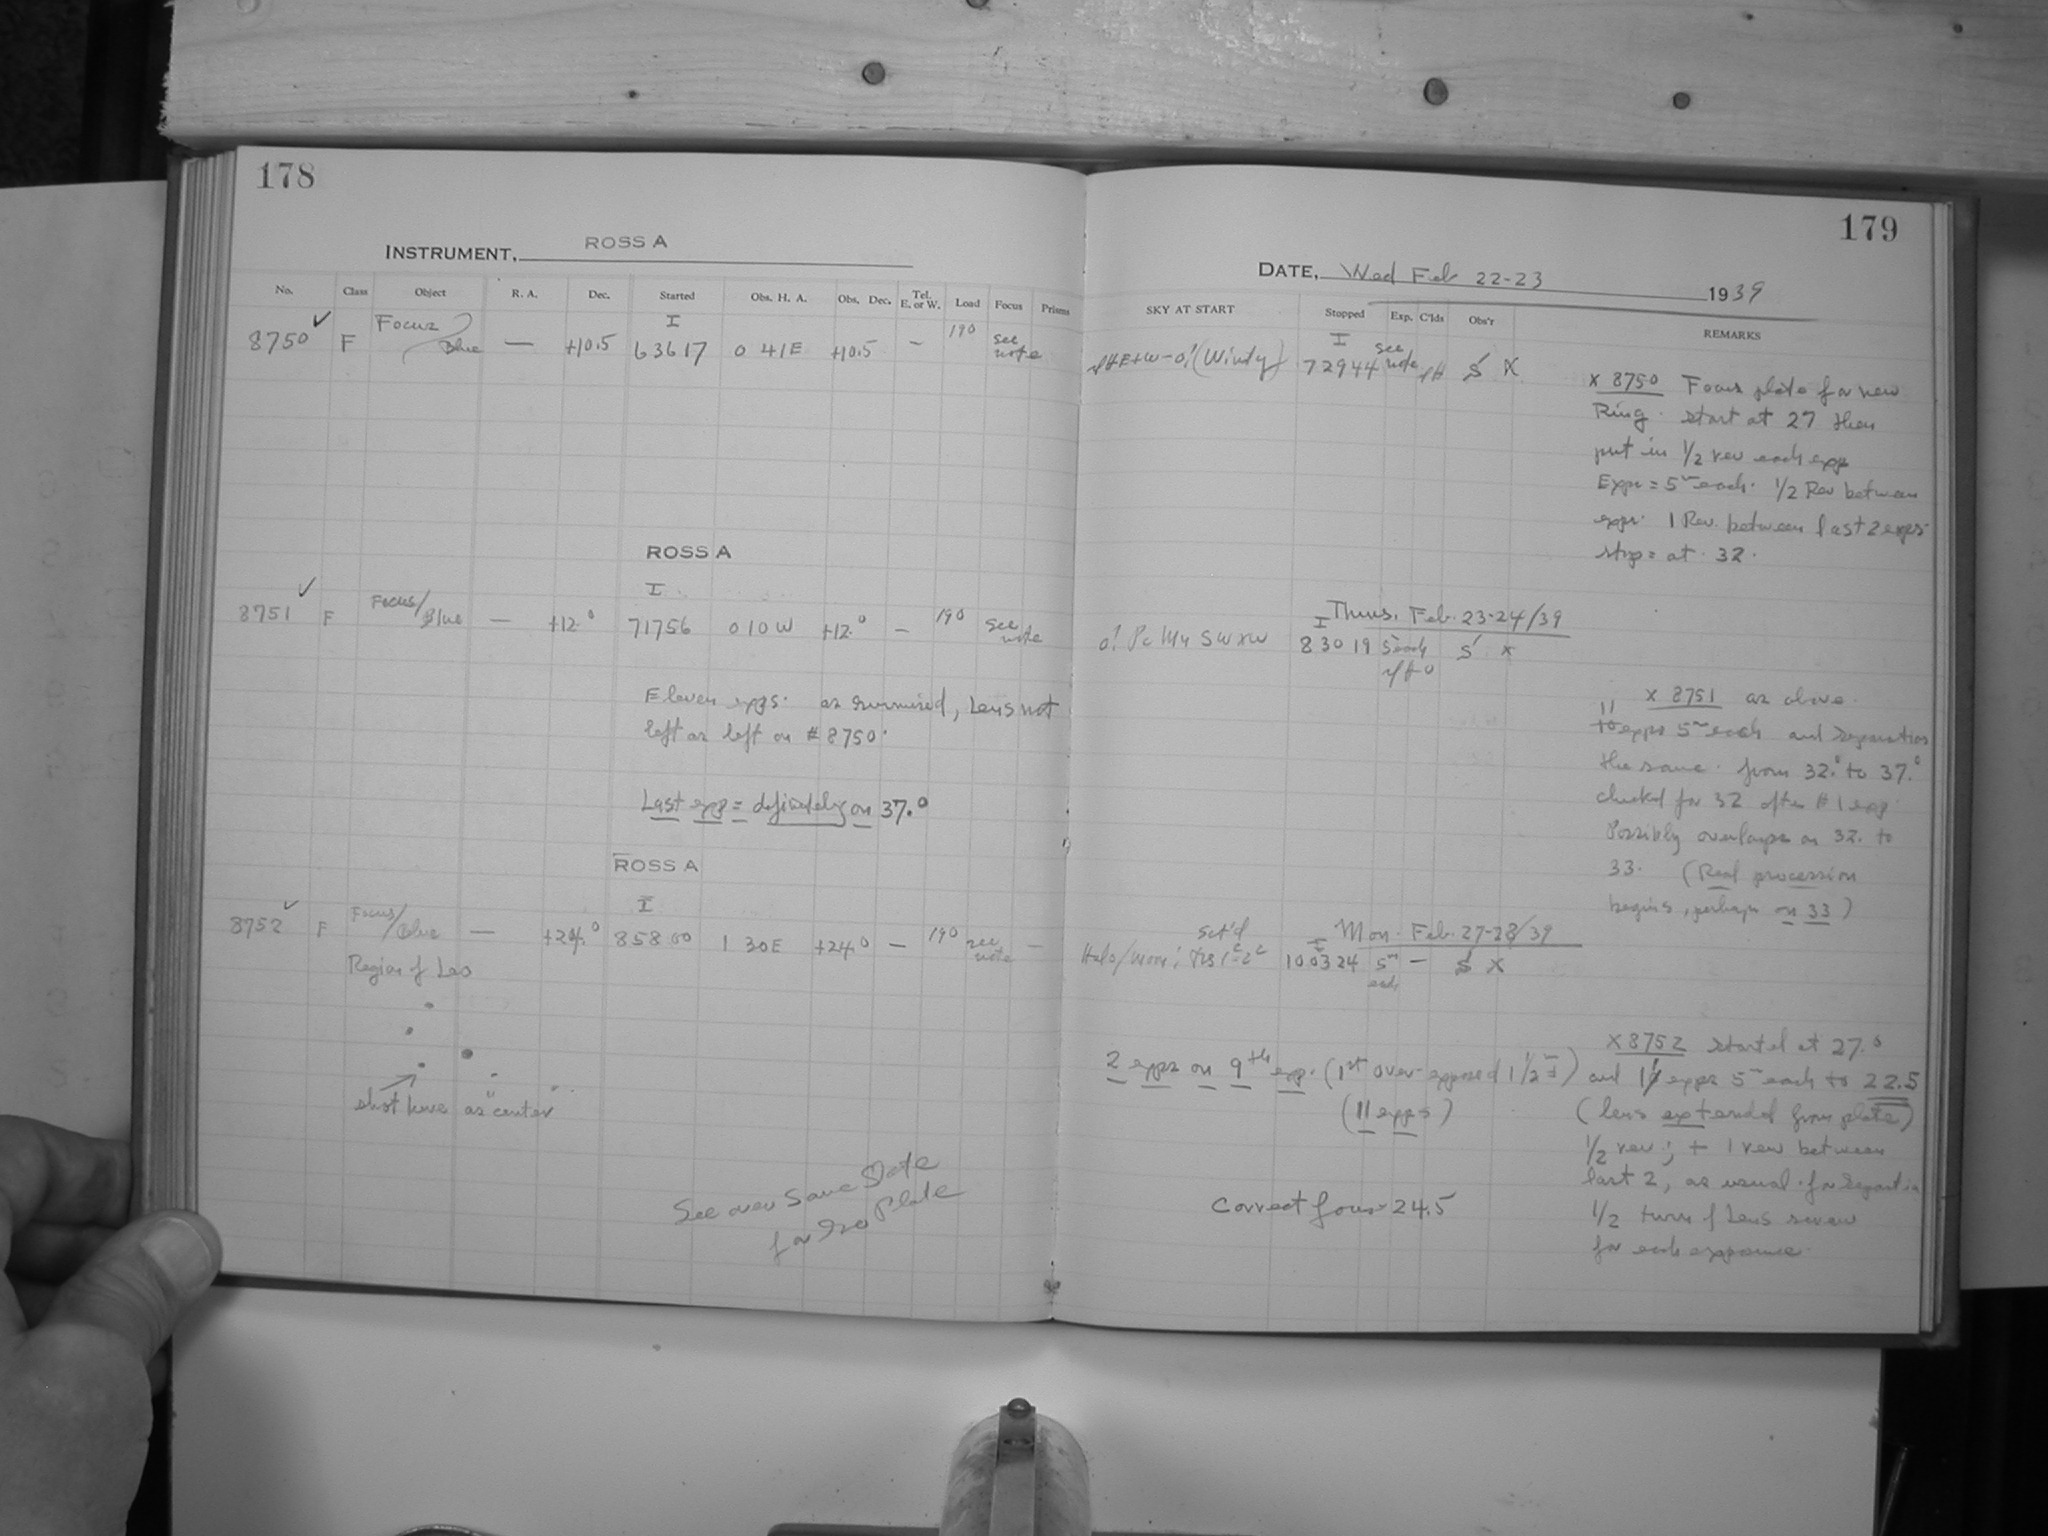 178
INSTRUMENT, ROSS A
No. Class Object R. A. Dec. Started Obs. H. A. Obs. Dec. Tel. E. or W. Load Focus Prisms
8750 ✓ F Focus / Blue — +10.5 I 63617 0 41E +10.5 – 190 see note
ROSS A
I
8751 ✓ F Focus/Blue — +12.° 71756 0 10 W +12.° – 190 see note
Eleven exps. as surmised, Lens not
left as left on #8750.
Last exp = definitely on 37.°
ROSS A
I
8752 ✓ F Focus/Blue — +24.° 85800 1 30E +24.0 – 190 see note —
Region of Leo
shot here as "center"
See over same Date
for Plate
179
DATE, Wed Feb 22-23 1939
SKY AT START Stopped Exp. C'lds Obs'r REMARKS
(Windy) I 72944 see note S X
x 8750 Focus plate for new
Ring. start at 27 then
put in 1/2 rev each exp
Exps = 5m each. 1/2 Rev between
exps. 1 Rev. between last 2 exps
stop = at 32.
Thurs. Feb. 23-24/39
I 83019 5 each S x
x 8751 as above.
11
10 exps 5m each and separation
the same. from 32.° to 37.°
checked for 32 after #1 exp
Possibly overlaps on 32. to
33. (Real procession
begins, perhaps on 33)
Mon. Feb. 27-28/39
sct'd
Halo/moon; I 100324 5m each — S X
x 8752 started at 27.°
2 exps on 9th exp. (1st over-exposed 1 1/2m) and 11 exps 5m each to 22.5
(11 exps)
(lens extended from plate)
1/2 rev; + 1 rev between
last 2, as usual.
Correct focus 24.5
1/2 turn of Lens screw
for each exposure.